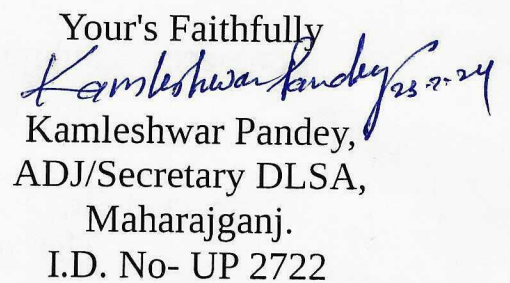 Your's Faithfully
Kamleshwar Pandey
Kamleshwar Pandey,
ADJ/Secretary DLSA,
Maharajganj.
I.D. No- UP 2722